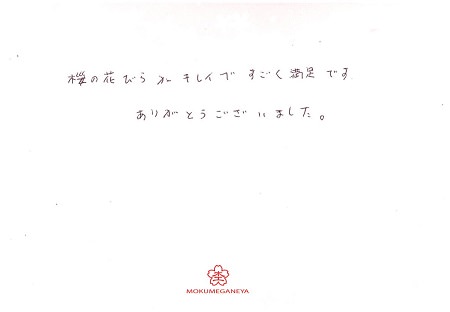 桜の花びらがキレイで すごく満足です
ありがとうございました。
MOKUMEGANEYA